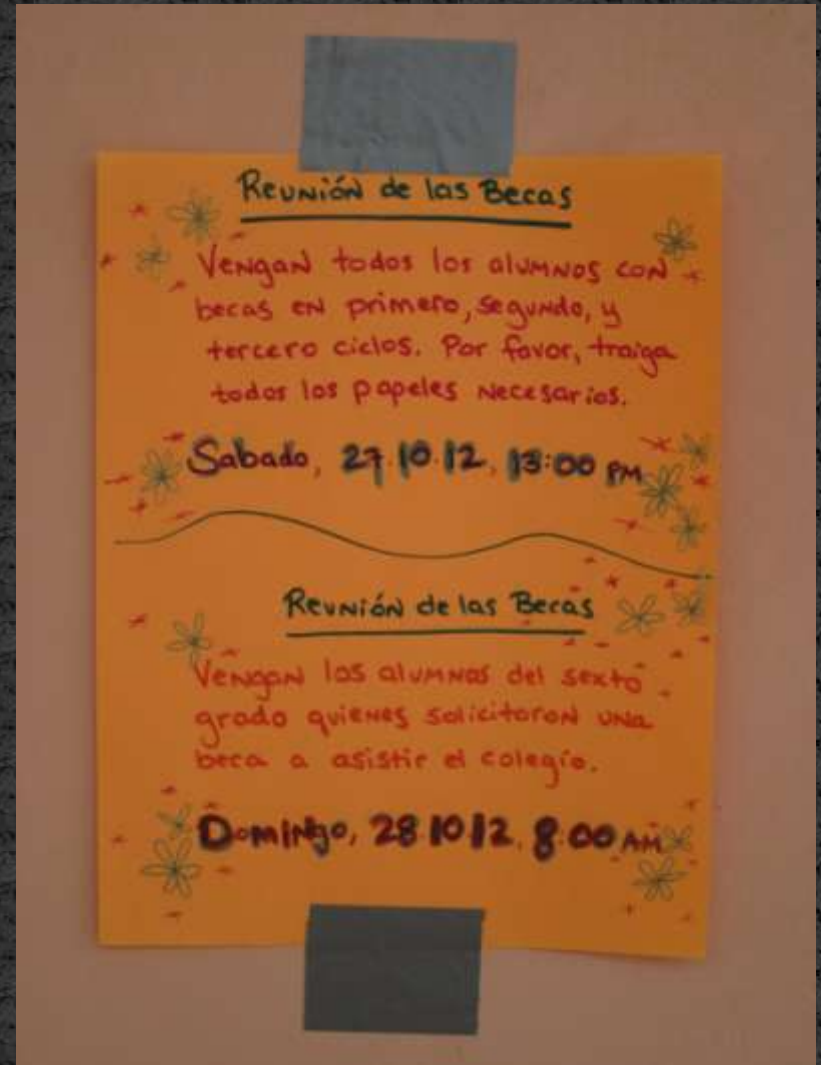 Reunión de las Becas
Vengan todos los alumnos con
becas en primero, segundo, y
tercero ciclos. Por favor, traiga
todos los papeles necesarios.
Sabado, 27.10.12, 13:00 PM
Reunión de las Becas
Vengan los alumnos del sexto
grado quienes solicitaron una
beca a asistir el colegio.
Domingo, 28.10.12, 8:00 AM